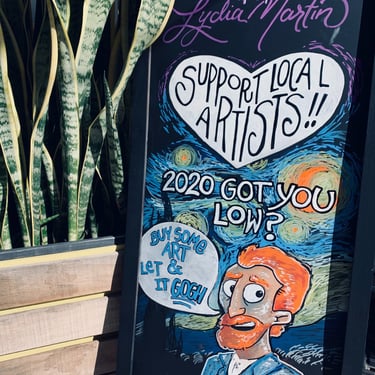 Lydia Martin
SUPPORT LOCAL
ARTISTS!!
2020 GOT YOU
LOW?
BUY SOME
ART
LET &
IT GOGH